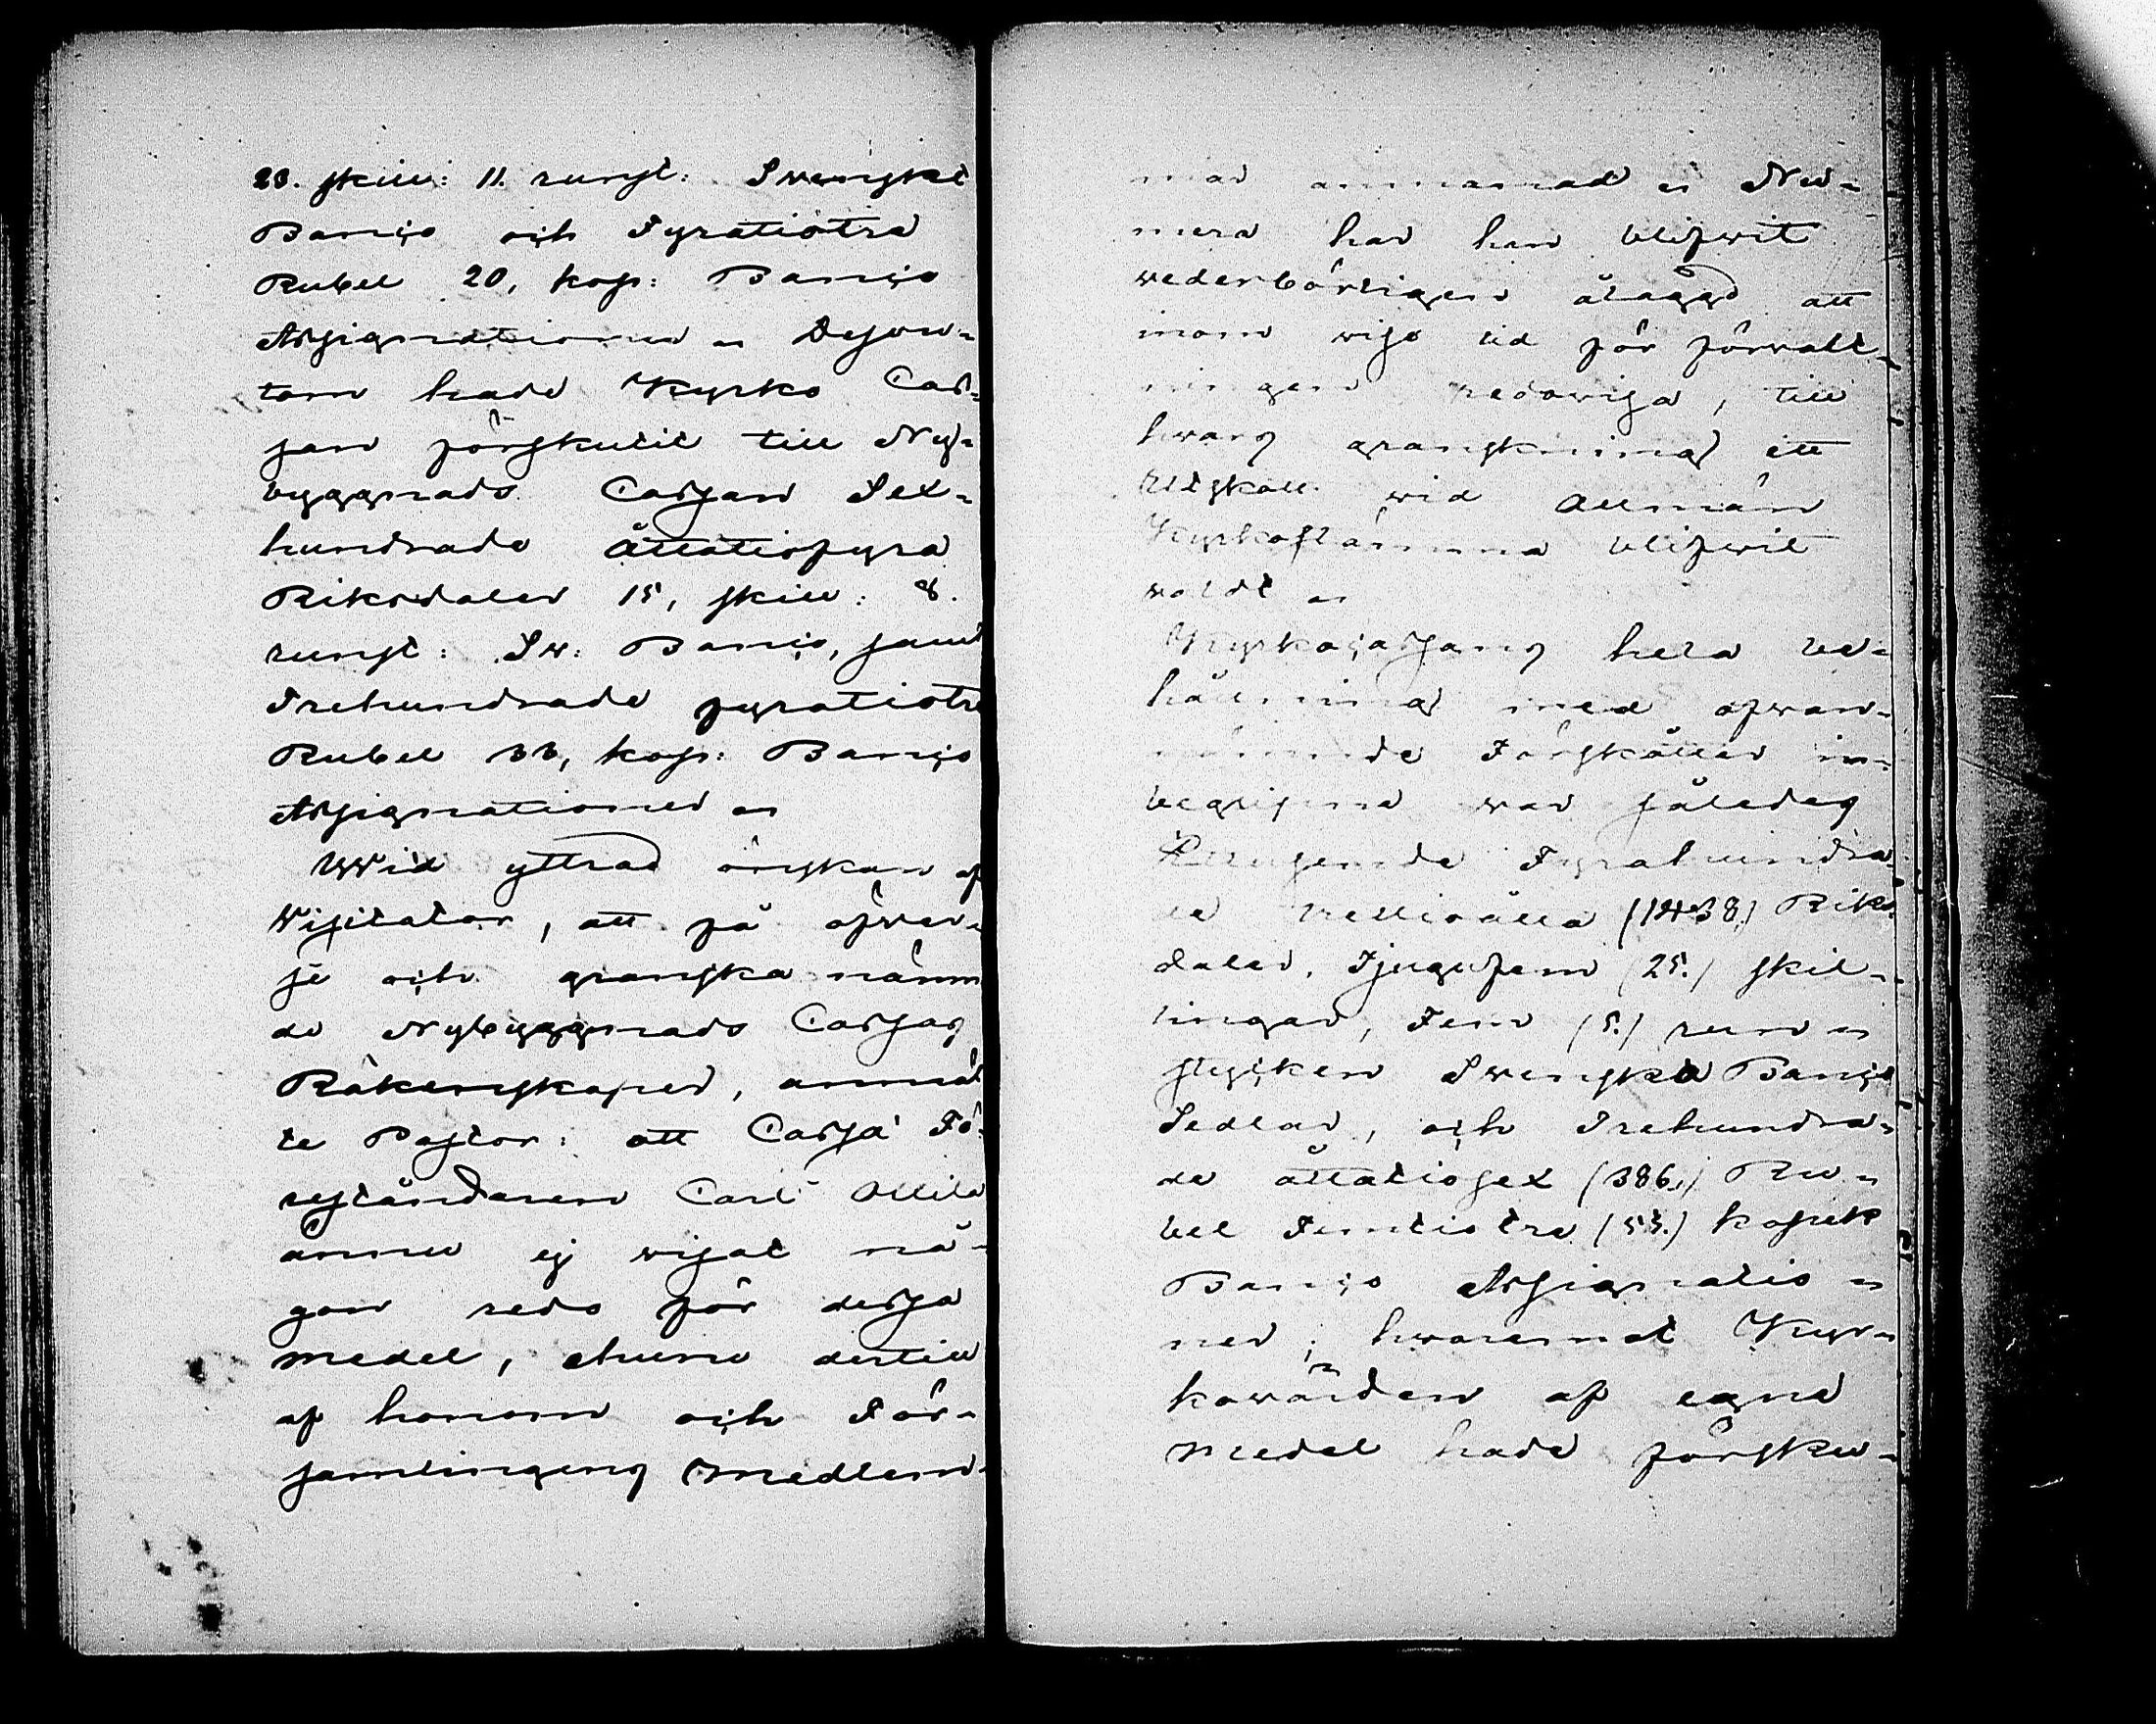 23. skill: 11. runst: Swenskt
Banco och Fyratiotre
Rubel 20, kop: Banco
Assignationer Dessu-
tom hade Kyrko Cas-
san förskutit till Ny-
byggnads Cassan Sex-
hundrade åttatiofyra
Riksdaler 15, skill: 8.
runst: Sw: Banco, samt
Trehundrade fyratiotre
Rubel 33, kop: Banco
Assignationer
Wid yttrad önskan af
Visitator, att få öfver-
se och granska nämn
de Nybyggnads Cassas
Räkenskaper, anmäl
te Pastor: att Cassa Fö-
reståndaren Carl
ännu ej visat nå-
gon redo för dessa
medel, ehuru dertill
af honom och För-
samlingens medlem-
mar anmanad Nu-
mera har han blifwit
wederbörligen ålaggd att
inom wiss tid för förwalt-
ningen redowisa, till
hwars granskning ett
Utskott wid allmän
Kyrkostämma blifwit
waldt
Kyrkocassans hela be-
hållning med ofwan-
nämnde Förskotter in-
begripne war således
Ettusende Fyrahundra
de trettioåtta (1438.) Riks
daler, Tjugufem (25.) skil-
lingar, Fem (5.) run
stycken Swenska Banco
Sedlar, och Trehundra-
de åttatiosex (386.) Ru-
bel Femtiotre (53.) kopek
Banco Assignatio
ner; hwaremot Kyr-
kowärden af egne
medel hade försku-